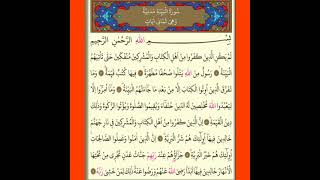 سُورَةُ الْبَيِّنَةِ مَدَنِيَّةٌ
وَهِيَ ثَمَانِ آيَاتٍ
بِسْمِ اللَّهِ الرَّحْمَٰنِ الرَّحِيمِ
لَمْ يَكُنِ الَّذِينَ كَفَرُوا مِنْ أَهْلِ الْكِتَابِ وَالْمُشْرِكِينَ مُنْفَكِّينَ حَتَّىٰ تَأْتِيَهُمُ
الْبَيِّنَةُ رَسُولٌ مِنَ اللَّهِ يَتْلُوا صُحُفًا مُطَهَّرَةً فِيهَا كُتُبٌ قَيِّمَةٌ وَمَا
تَفَرَّقَ الَّذِينَ أُوتُوا الْكِتَابَ إِلَّا مِنْ بَعْدِ مَا جَاءَتْهُمُ الْبَيِّنَةُ وَمَا أُمِرُوا إِلَّا
لِيَعْبُدُوا اللَّهَ مُخْلِصِينَ لَهُ الدِّينَ حُنَفَاءَ وَيُقِيمُوا الصَّلَاةَ وَيُؤْتُوا الزَّكَاةَ وَذَٰلِكَ
دِينُ الْقَيِّمَةِ إِنَّ الَّذِينَ كَفَرُوا مِنْ أَهْلِ الْكِتَابِ وَالْمُشْرِكِينَ فِي نَارِ جَهَنَّمَ
خَالِدِينَ فِيهَا أُولَٰئِكَ هُمْ شَرُّ الْبَرِيَّةِ إِنَّ الَّذِينَ آمَنُوا وَعَمِلُوا الصَّالِحَاتِ
أُولَٰئِكَ هُمْ خَيْرُ الْبَرِيَّةِ جَزَاؤُهُمْ عِنْدَ رَبِّهِمْ جَنَّاتُ عَدْنٍ تَجْرِي مِنْ تَحْتِهَا
الْأَنْهَارُ خَالِدِينَ فِيهَا أَبَدًا رَضِيَ اللَّهُ عَنْهُمْ وَرَضُوا عَنْهُ ذَٰلِكَ لِمَنْ خَشِيَ رَبَّهُ